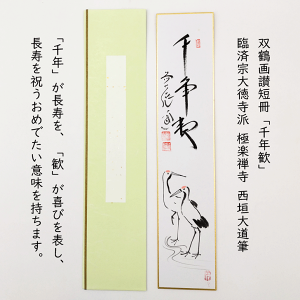 双鶴画讃短冊「千年歓」
臨済宗大徳寺派 極楽禅寺 西垣大道筆
千年歓
「千年」が長寿を、「歓」が喜びを表し、
長寿を祝うおめでたい意味を持ちます。